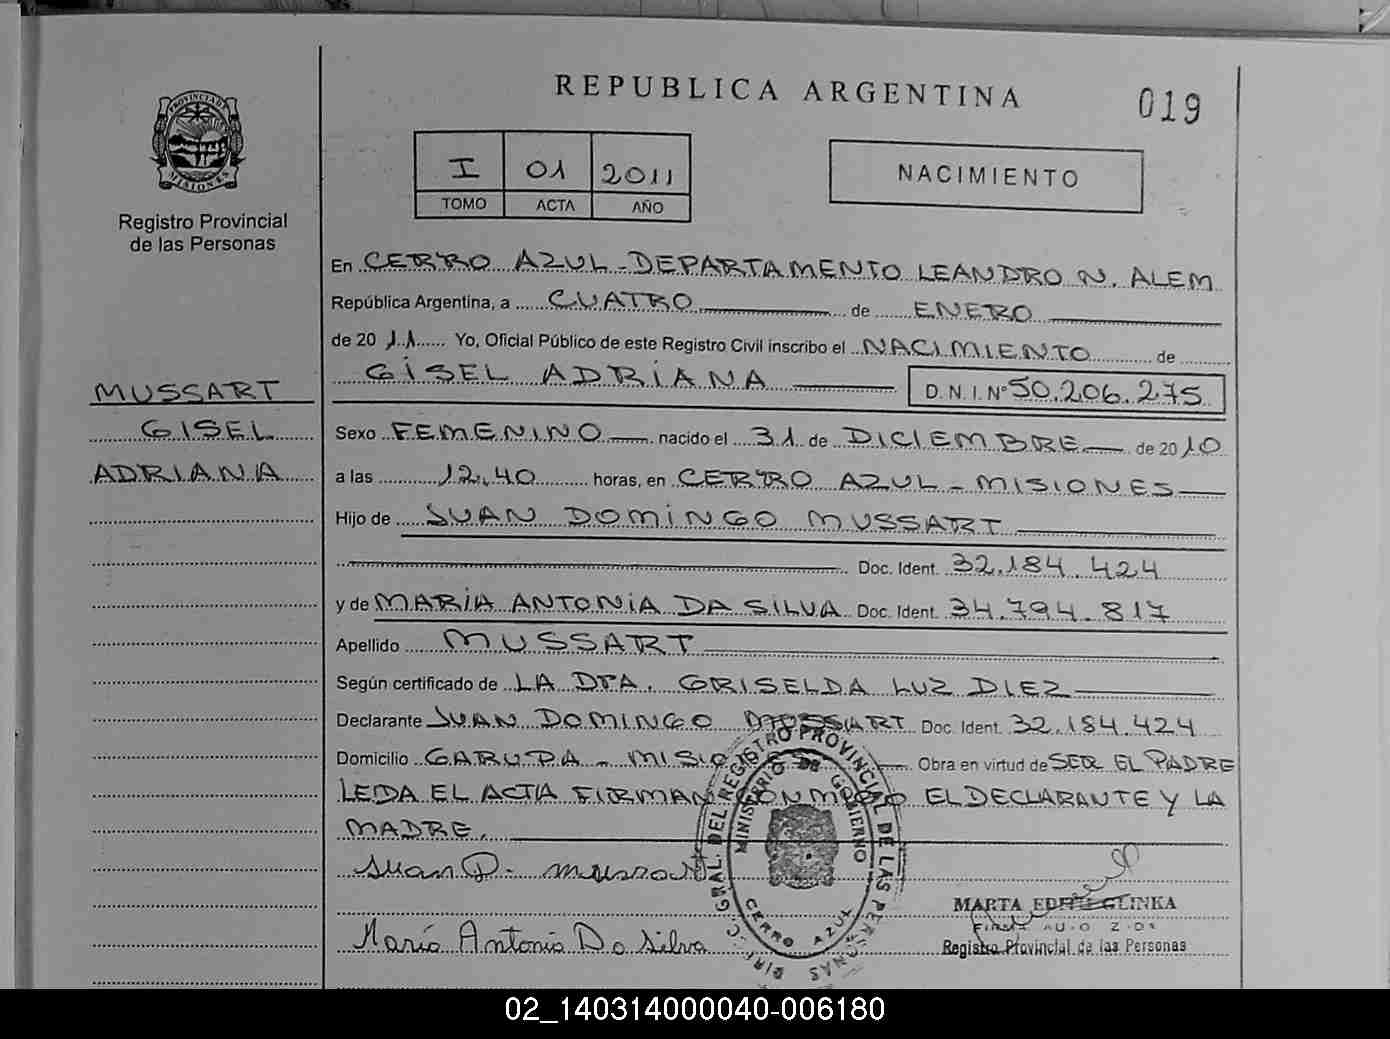 REPUBLICA ARGENTINA
019
PROVINCIA DE MISIONES
Registro Provincial
de las Personas
I 01 2011
TOMO ACTA AÑO
NACIMIENTO
MUSSART
GISEL
ADRIANA
En CERRO AZUL - DEPARTAMENTO LEANDRO N. ALEM
República Argentina, a CUATRO de ENERO
de 2011 Yo, Oficial Público de este Registro Civil inscribo el NACIMIENTO de
GISEL ADRIANA D.N.I. Nº 50.206.275
Sexo FEMENINO nacido el 31 de DICIEMBRE de 2010
a las 12,40 horas, en CERRO AZUL - MISIONES
Hijo de JUAN DOMINGO MUSSART
Doc. Ident. 32.184.424
y de MARIA ANTONIA DA SILVA Doc. Ident. 34.794.817
Apellido MUSSART
Según certificado de LA DRA. GRISELDA LUZ DIEZ
Declarante JUAN DOMINGO MUSSART Doc. Ident. 32.184.424
Domicilio GARUPA - MISIONES Obra en virtud de SER EL PADRE
LEIDA EL ACTA FIRMAN CONMIGO EL DECLARANTE Y LA
MADRE.
Juan D. Mussart
Maria Antonia Da Silva
DIRECC. GRAL. DEL REGISTRO PROVINCIAL DE LAS PERSONAS
MINISTERIO DE GOBIERNO
CERRO AZUL
MARTA EDITH GLINKA
Registro Provincial de las Personas
02_140314000040-006180